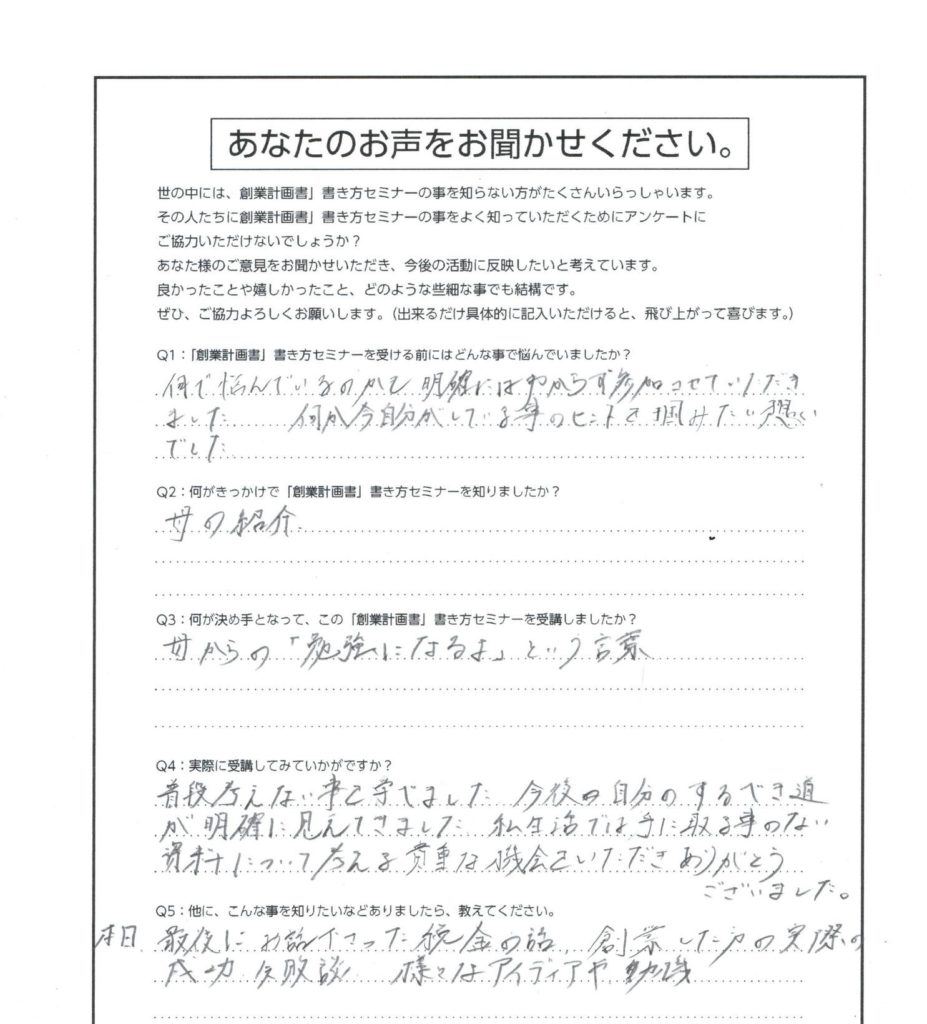 あなたのお声をお聞かせください。
世の中には、創業計画書」書き方セミナーの事を知らない方がたくさんいらっしゃいます。
その人たちに創業計画書」書き方セミナーの事をよく知っていただくためにアンケートに
ご協力いただけないでしょうか？
あなた様のご意見をお聞かせいただき、今後の活動に反映したいと考えています。
良かったことや嬉しかったこと、どのような些細な事でも結構です。
ぜひ、ご協力よろしくお願いします。（出来るだけ具体的に記入いただけると、飛び上がって喜びます。）
Q1：「創業計画書」書き方セミナーを受ける前にはどんな事で悩んでいましたか？
何で悩んでいるのかも明確にはわからず参加させていただき
ました　何か今自分がしている事のヒントを掴みたい想い
でした
Q2：何がきっかけで「創業計画書」書き方セミナーを知りましたか？
母の紹介
Q3：何が決め手となって、この「創業計画書」書き方セミナーを受講しましたか？
母からの「勉強になるよ」という言葉
Q4：実際に受講してみていかがですか？
普段考えない事を学べました　今後の自分のするべき道
が明確に見えてきました　私生活では手に取る事のない
資料について考える貴重な機会をいただきありがとう
ございました。
Q5：他に、こんな事を知りたいなどありましたら、教えてください。
本日 最後にお話下さった税金の話、創業した方の実際の
成功 失敗談　様々なアイディアや